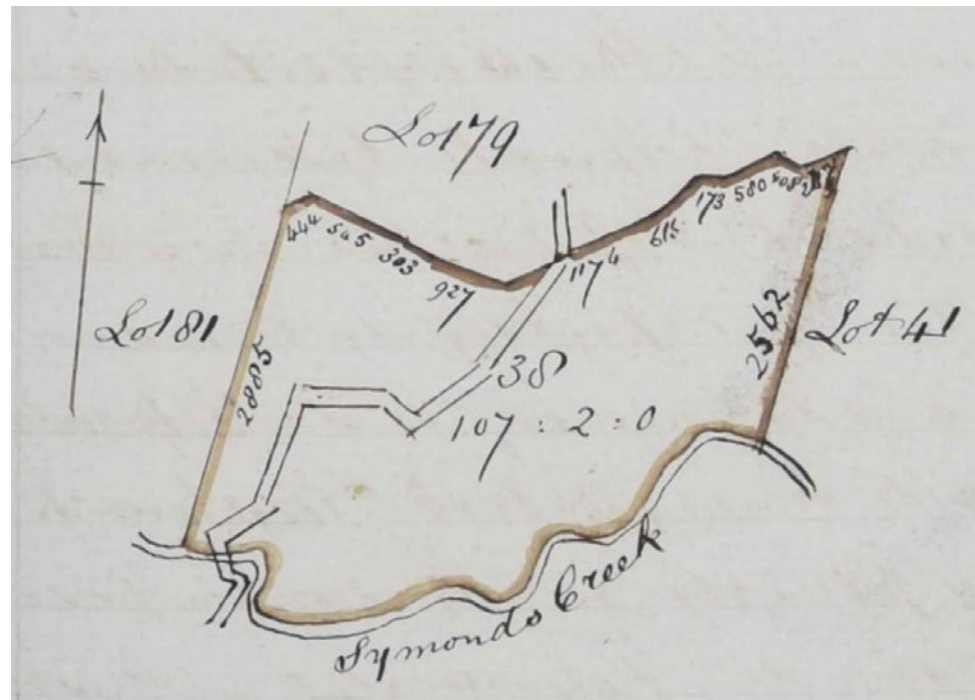 Lot 79
444
545
303
927
1174
615
173
580
Lot 81
2885
2562
Lot 41
38
107 : 2 : 0
Symonds Creek